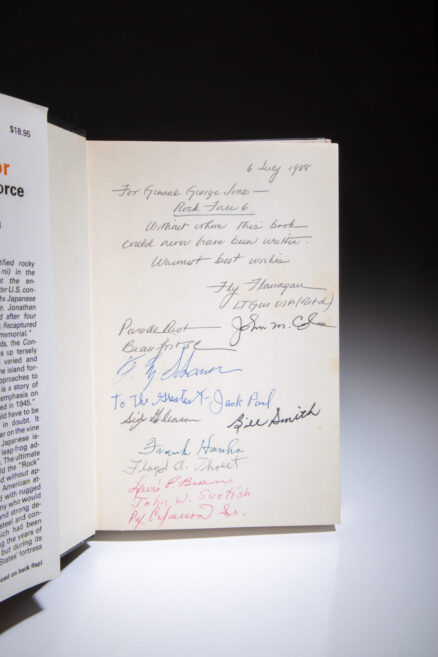 $18.95
or
orce
tified rocky
mi) in the
at the en-
der U.S. con-
he Japanese
n. Jonathan
d after four
Recaptured
memorial."
ds, the Con-
s up tersely
varied and
he island for-
approaches to
is a story of
emphasis on
d in 1945."
ld have to be
in doubt, it
er on the vine
Japanese is-
leap-frog ad-
The ultimate
ld the "Rock"
d without ap-
American at-
d with rugged
y who would
nd strong de-
steel and con-
hich had been
ng the years of
but during its
States' fortress
ued on back flap)
6 July 1988
For General George Jones—
Rock Force 6
Without whom this book
could never have been written.
Warmest best wishes
Fly Flanagan
LTGen USA (Retd)
Parade Rest
John M.
Beaufort SC
To The Greatest - Jack Paul
Sid Gleason
Bill Smith
Frank Hanks
Floyd A.
Lewis B Brown
John W.
Sr.